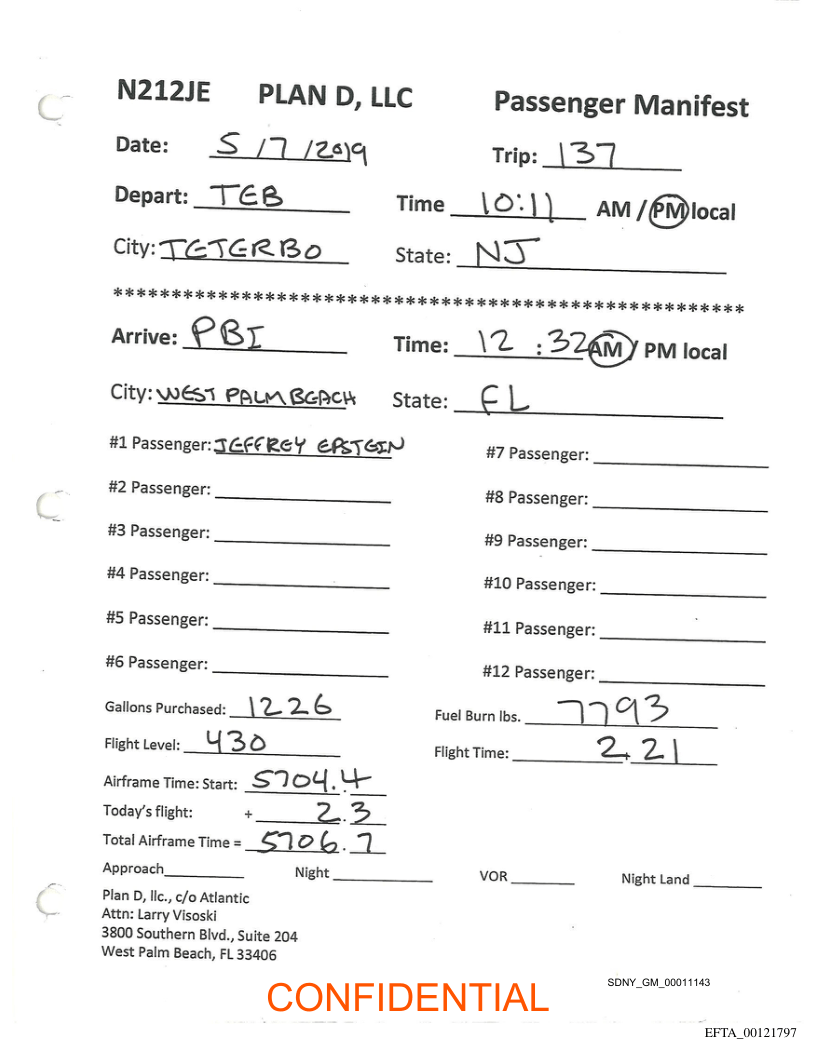 N212JE PLAN D, LLC Passenger Manifest
Date: 5/7/2019 Trip: 137
Depart: TEB Time 10:11 AM / PM local
City: TETERBO State: NJ
******************************************************
Arrive: PBI Time: 12:32 AM / PM local
City: WEST PALM BEACH State: FL
#1 Passenger: JEFFREY EPSTEIN #7 Passenger:
#2 Passenger: #8 Passenger:
#3 Passenger: #9 Passenger:
#4 Passenger: #10 Passenger:
#5 Passenger: #11 Passenger:
#6 Passenger: #12 Passenger:
Gallons Purchased: 1226 Fuel Burn lbs. 7793
Flight Level: 430 Flight Time: 2+21
Airframe Time: Start: 5704.4
Today's flight: + 2.3
Total Airframe Time = 5706.7
Approach Night VOR Night Land
Plan D, llc., c/o Atlantic
Attn: Larry Visoski
3800 Southern Blvd., Suite 204
West Palm Beach, FL 33406
SDNY_GM_00011143
CONFIDENTIAL
EFTA_00121797